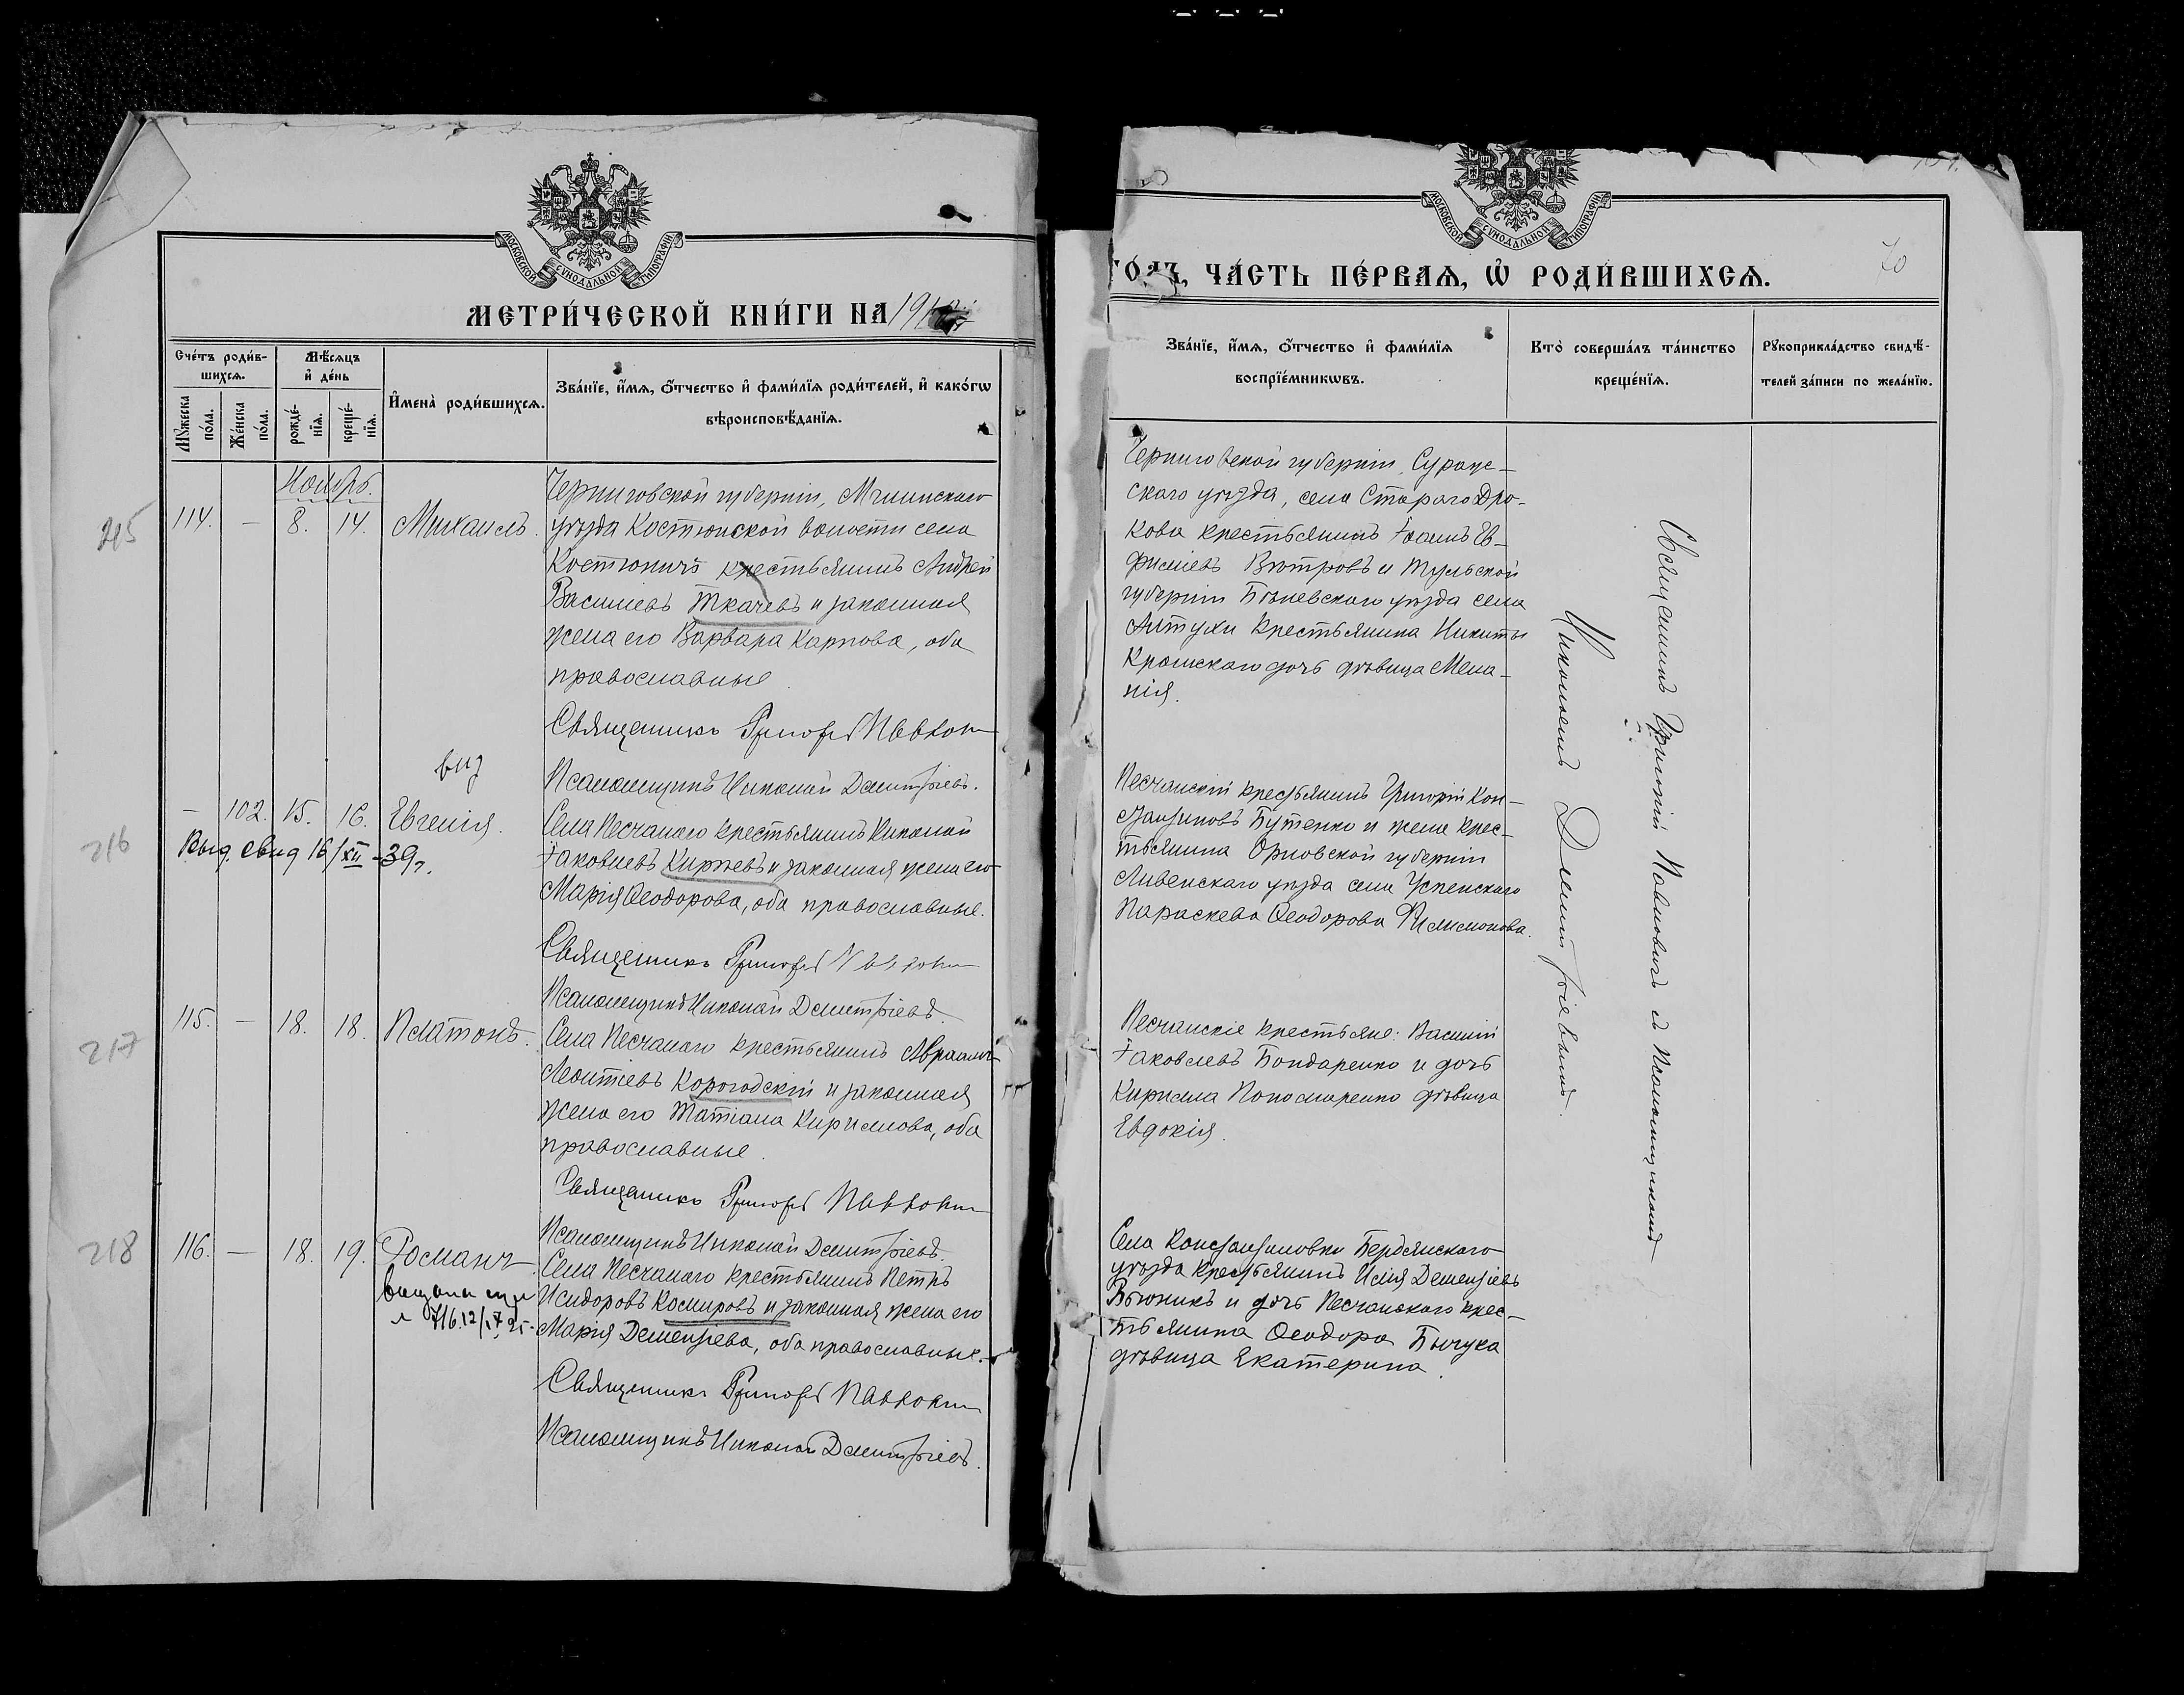 МОСКОВСКОЙ СѴНОДАЛЬНОЙ ТИПОГРАФІИ
МЕТРИ́ЧЕСКОЙ КНИ́ГИ НА 191
Сче́тъ роди́в-
шихсѧ.
Мѣ́сѧцъ
и҆ де́нь
Мꙋ́жеска
по́ла.
Же́нска
по́ла.
рожде́-
нїѧ.
креще́-
нїѧ.
И҆мена̀ роди́вшихсѧ.
Зва́нїе, и҆́мѧ, ѻ҆́тчество и҆ фами́лїѧ роди́телей, и҆ како́гѡ
вѣроисповѣ́данїѧ.
Ноябрь.
215
114. — 8. 14. Михаилъ.
Черниговской губерніи, Мглинскаго
уѣзда Костюнской волости села
Костюничъ крестьянинъ Андрей
Васильевъ Ткачевъ и законная
жена его Варвара Карпова, оба
православные.
Священникъ Григорій Павлович
Псаломщикъ Николай Димитріевъ.
вид
216
— 102. 15. 16. Евгенія.
Выд. свид 16/XII -39г.
Села Песчанаго крестьянинъ Николай
Іаковлевъ Киржевъ и законная жена его
Марія Ѳеодорова, оба православные.
Священникъ Григорій
Псаломщикъ Николай Димитріевъ.
217
115. — 18. 18. Платонъ.
Села Песчанаго крестьянинъ Авраамъ
Леонтіевъ Корогодскій и законная
жена его Татіана Кириллова, оба
православные.
Священникъ Григорій Павлович
Псаломщикъ Николай Димитріевъ.
218
116. — 18. 19. Романъ
Села Песчанаго крестьянинъ Петръ
Исидоровъ Комировъ и законная жена его
Марія Дементіева, оба православные.
Священникъ Григорій Павлович
Псаломщикъ Николай Димитріевъ.
МОСКОВСКОЙ СѴНОДАЛЬНОЙ ТИПОГРАФІИ
70
ГО́ДЪ, ЧА́СТЬ ПЕ́РВАѦ, Ѡ҆ РОДИ́ВШИХСѦ.
Зва́нїе, и҆́мѧ, ѻ҆́тчество и҆ фами́лїѧ
воспрїе́мникѡвъ.
Кто̀ соверша́лъ та́инство
креще́нїѧ.
Рꙋкоприкла́дство свидѣ́-
телей за́писи по жела́нїю.
Черниговской губерніи, Сураж-
скаго уѣзда, села Стараго Дро-
кова крестьянинъ Іоаннъ Ев-
фиміевъ Вѣтровъ и Тульской
губерніи Бѣлевскаго уѣзда села
Алтухи крестьянина Никиты
дочь дѣвица Мела-
нія.
Песчанскій крестьянинъ Григорій Кон-
стантиновъ Бутенко и жена крес-
тьянина Орловской губерніи
Ливенскаго уѣзда села Успенскаго
Параскева Ѳеодорова Филимонова.
Песчанскіе крестьяне: Василій
Іаковлевъ Бондаренко и дочь
Кирилла Пономаренко дѣвица
Евдокія.
Села Константиновки Бердянскаго
уѣзда крестьянинъ Илія Дементіевъ
Вьюникъ и дочь Песчанскаго крес-
тьянина Ѳеодора Бычука
дѣвица Екатерина.
Священникъ Григорій Павловичъ съ Псаломщикомъ
Николаемъ Димитріевымъ.